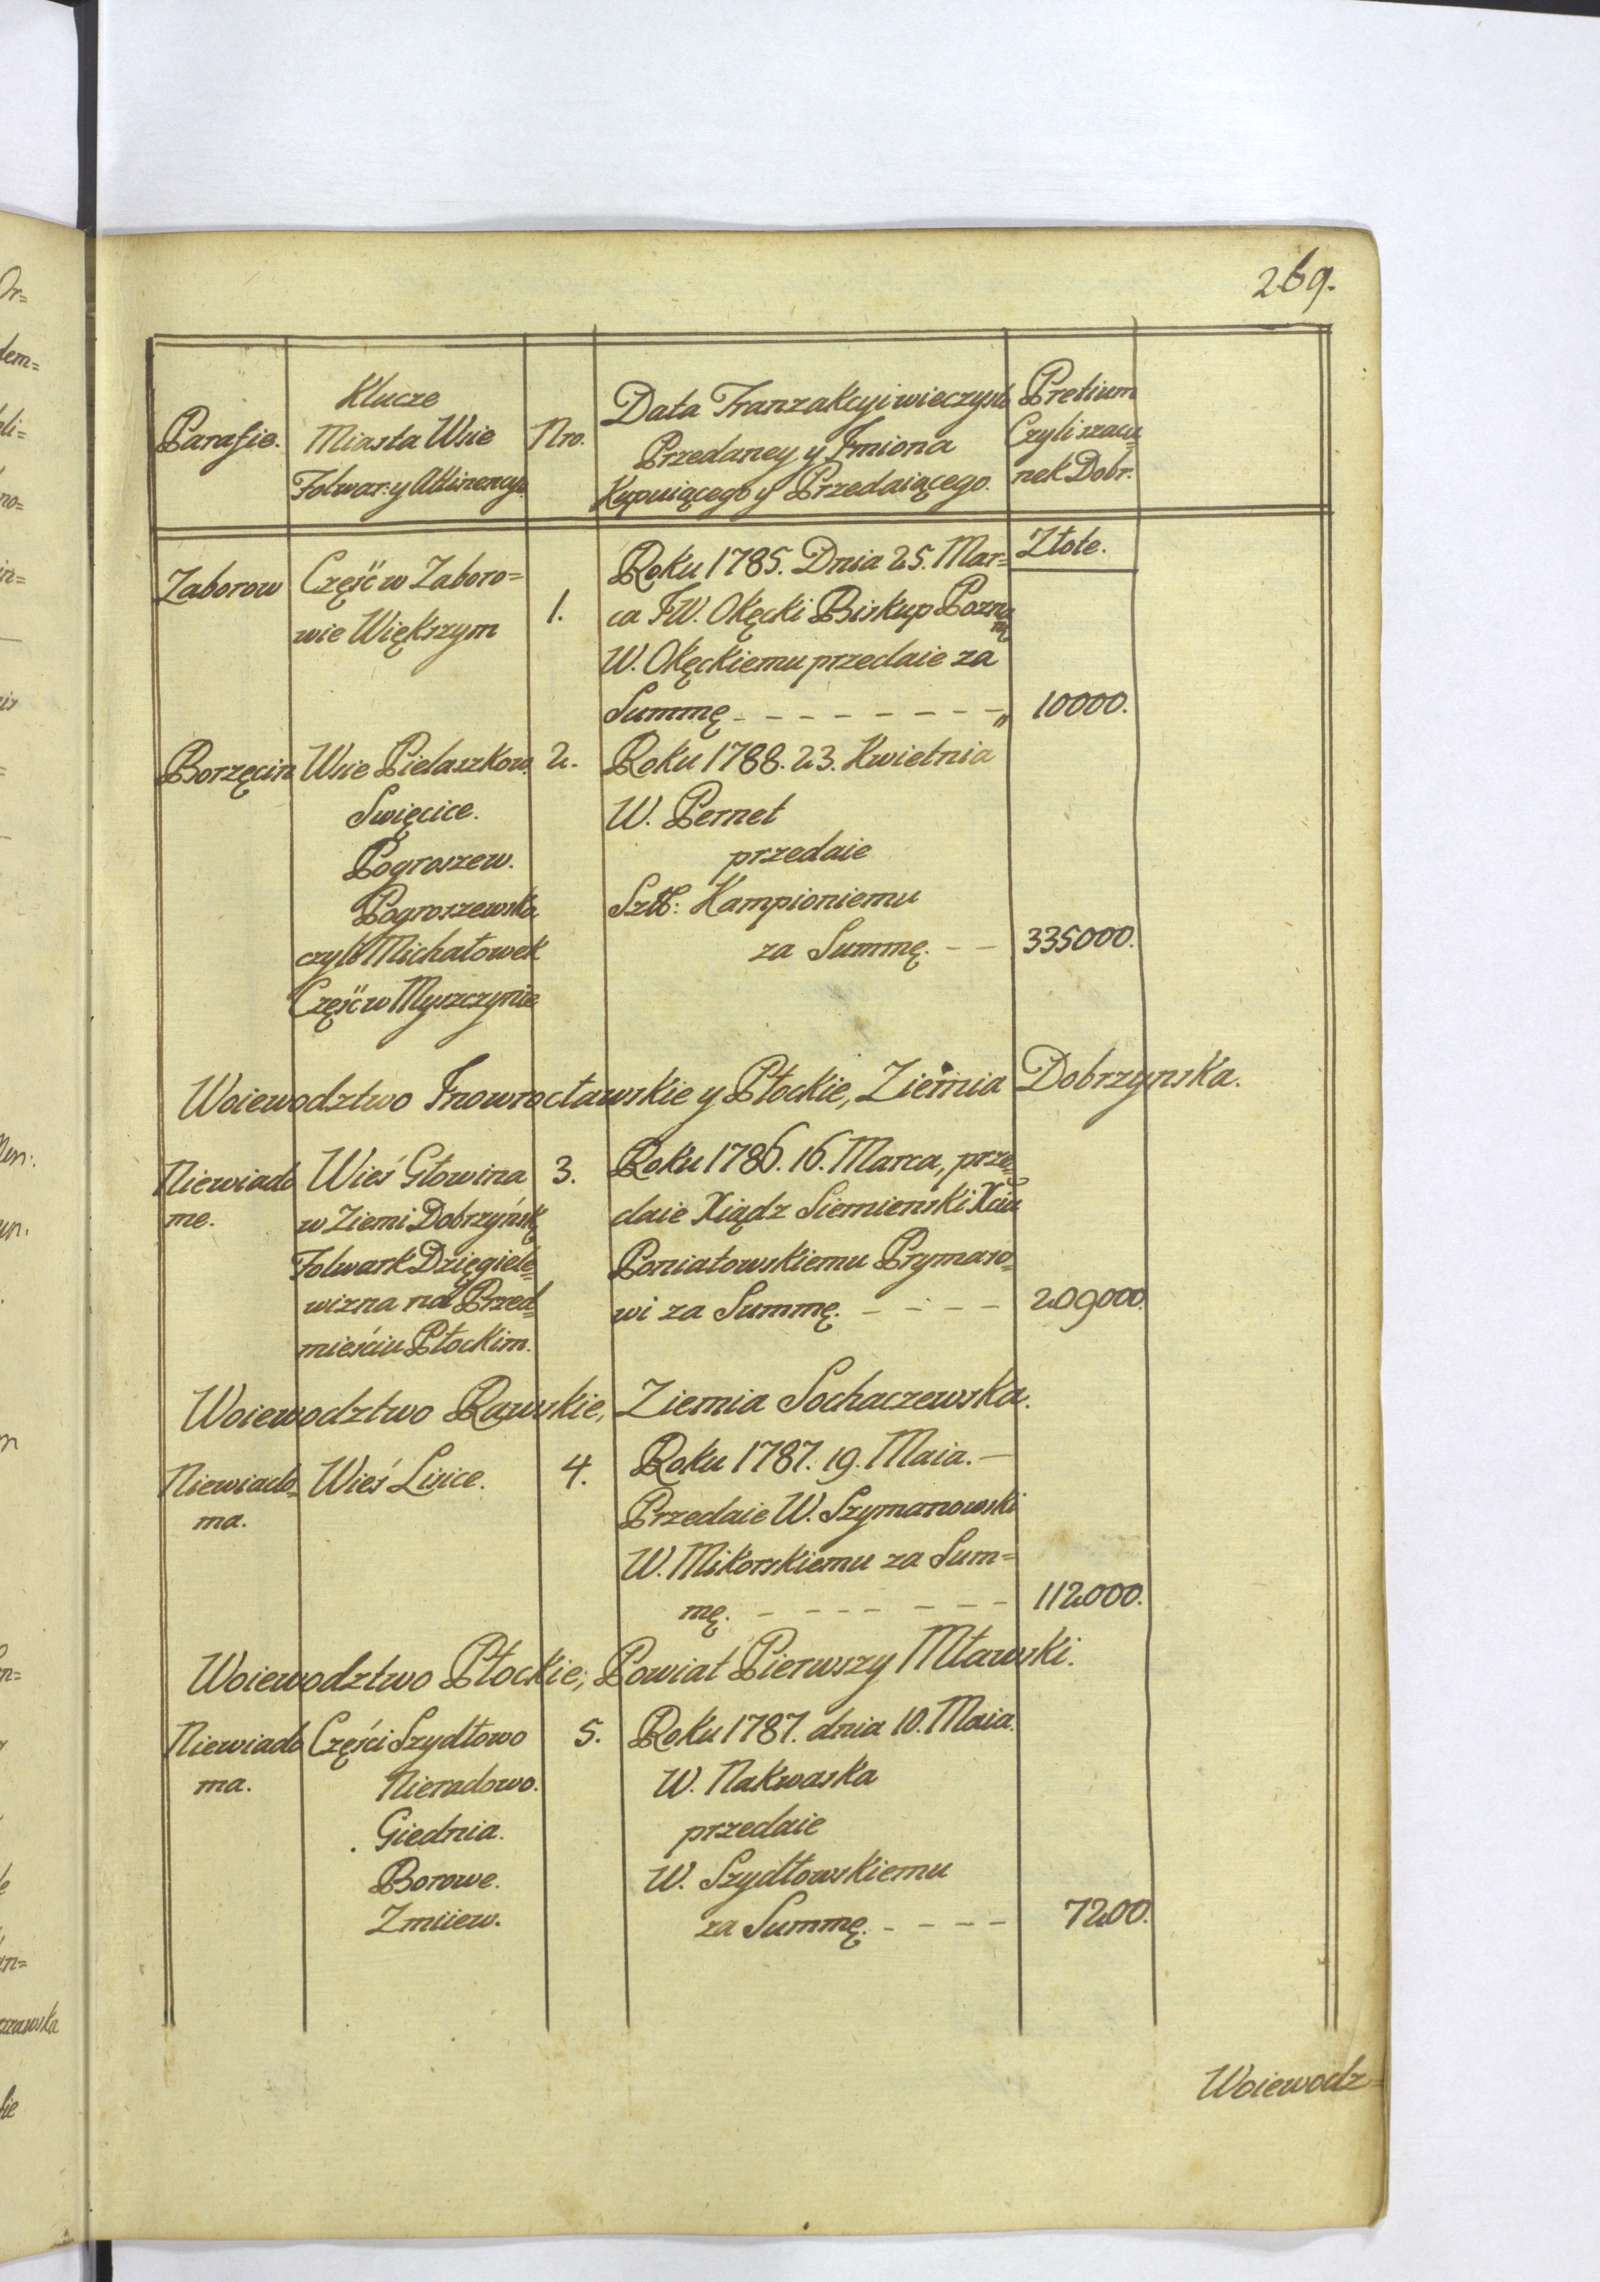 269.
Parafie.
Klucze
Miasta Wsie
Folwar: y Attinencye
Nro.
Data Tranzakcyi wieczysto
Przedaney y Jmiona
Kupuiącego y Przedaiącego.
Pretium
Czyli szacu=
nek Dobr.
Złote.
Zaborow
Część w Zaboro=
wie Większym
1.
Roku 1785. Dnia 25. Mar=
ca JW. Okęcki Biskup Pozna
W. Okęckiemu przedaie za
Summę - - - - - - - - - "
10000.
Borzęcin
Wsie Pielaszkow.
Swięcice.
Pogroszew.
Pogroszewska
czyli Michałowek
Część w Myszczynie
2.
Roku 1788. 23. Kwietnia
W. Pernet
przedaie
Sztt: Kampioniemu
za Summę. - -
335000.
Woiewodztwo Jnowrocławskie y Płockie, Ziemia Dobrzynska.
Niewiado
me.
Wieś Głowina
w Ziemi Dobrzyńsk
Folwark Dzięgiele=
wizna na Przed=
mieściu Płockim.
3.
Roku 1786. 16. Marca, prze=
daie Xiądz Siemienski Xciu
Poniatowskiemu Prymaso=
wi za Summę. - - - -
209000.
Woiewodztwo Rawskie, Ziemia Sochaczewska.
Niewiado=
ma.
Wieś Lisice.
4.
Roku 1787. 19. Maia. -
Przedaie W. Szymanowski
W. Mikorskiemu za Sum=
mę. - - - - - - -
112000.
Woiewodztwo Płockie, Powiat Pierwszy Mławski.
Niewiado
ma.
Części Szydłowo
Nieradowo.
Giednia.
Borowe.
Zmiiew.
5.
Roku 1787. dnia 10. Maia.
W. Nakwaska
przedaie
W. Szydłowskiemu
za Summę. - - - -
7200.
Woiewodz=